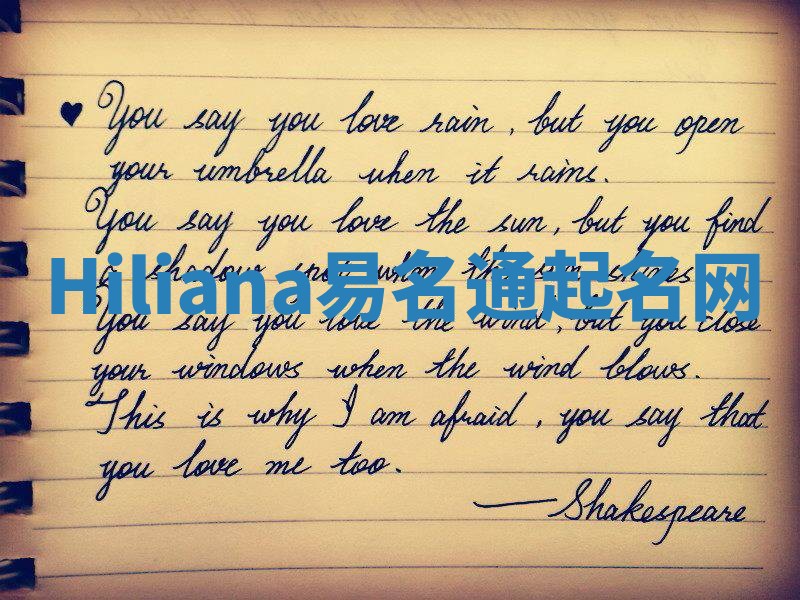 ♥ You say you love rain, but you open
your umbrella when it rains.
You say you love the sun, but you find
a shadow spot when the sun shines
Hiliana易名通起名网
You say you love the wind, but you close
your windows when the wind blows.
This is why I am afraid, you say that
you love me too.
— Shakespeare